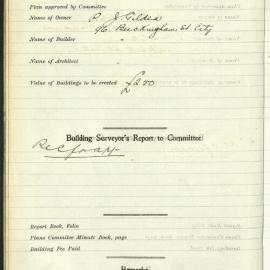 Plan approved by Committee
Name of Owner P. J. Gildea
96 Buckingham St City
Name of Builder "
Name of Architect "
Value of Buildings to be erected £200
Building Surveyor's Report to Committee
Rec for app
Report Book, Folio
Plans Committee Minute Book, page
Building Fee Paid
Remarks